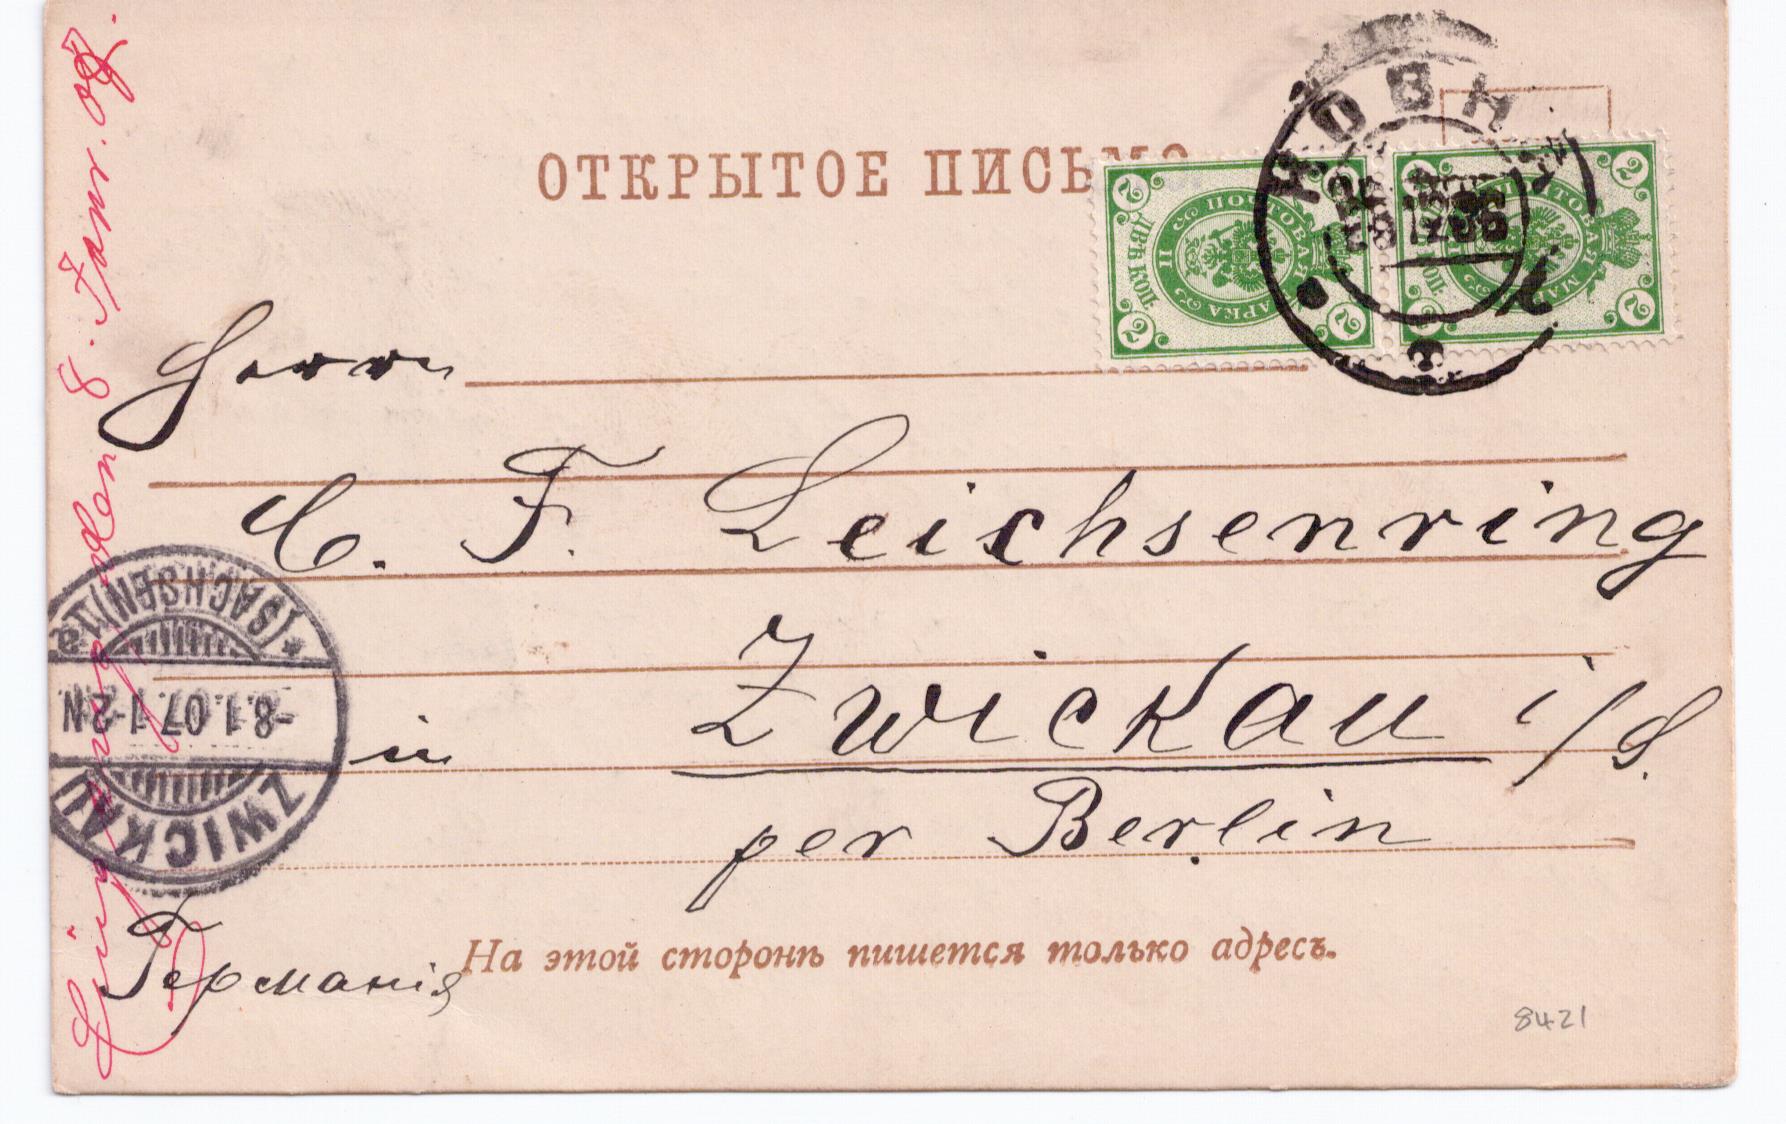 ОТКРЫТОЕ ПИСЬМО
2 2 ПОЧТОВАЯ МАРКА ДВѢ КОП. 2 2
2 2 ПОЧТОВАЯ МАРКА КОП. 2 2
КОВН
Herrn
C. F. Leichsenring
in Zwickau i/S.
per Berlin
Германія
На этой сторонѣ пишется только адресъ.
8421
Eingegangen 8. Janr. 07.
ZWICKAU
-8.1.07.1-2N
*(SACHSEN)1a